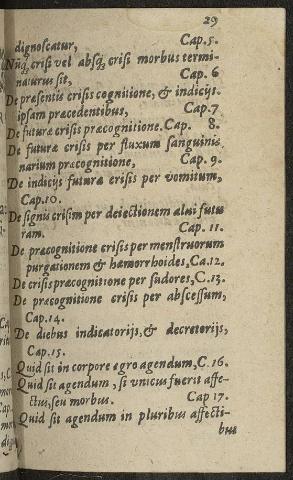 29
dignoscatur, Cap.5.
Nūq; crisi vel absq; crisi morbus termi-
naturus sit, Cap. 6
De præsentis crisis cognitione, & indicijs
ipsam præcedentibus, Cap.7
De futuræ crisis præcognitione. Cap. 8.
De futuræ crisis per fluxum sanguinis
narium præcognitione, Cap. 9.
De indicijs futuræ crisis per vomitum,
Cap.10.
De signis crisim per deiectionem alui futu
ram. Cap. 11.
De præcognitione crisis per menstruorum
purgationem & hæmorrhoides, Ca.12.
De crisis præcognitione per sudores, C.13.
De præcognitione crisis per abscessum,
Cap.14.
De diebus indicatorijs, & decreterijs,
Cap.15.
Quid sit in corpore ægro agendum, C.16.
Quid sit agendum, si vnicus fuerit affe-
ctus, seu morbus. Cap 17.
Quid sit agendum in pluribus affecti-
bus